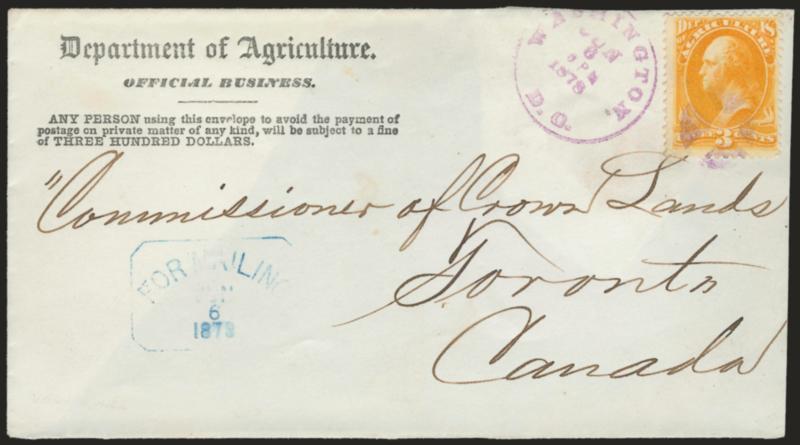 Department of Agriculture.
OFFICIAL BUSINESS.
ANY PERSON using this envelope to avoid the payment of
postage on private matter of any kind, will be subject to a fine
of THREE HUNDRED DOLLARS.
WASHINGTON,
JUN
6
5 PM
1878
D.C.
AGRICULTURE
3
"Commissioner of Crown Lands
Toronto
Canada
FOR MAILING
JUN
6
1878